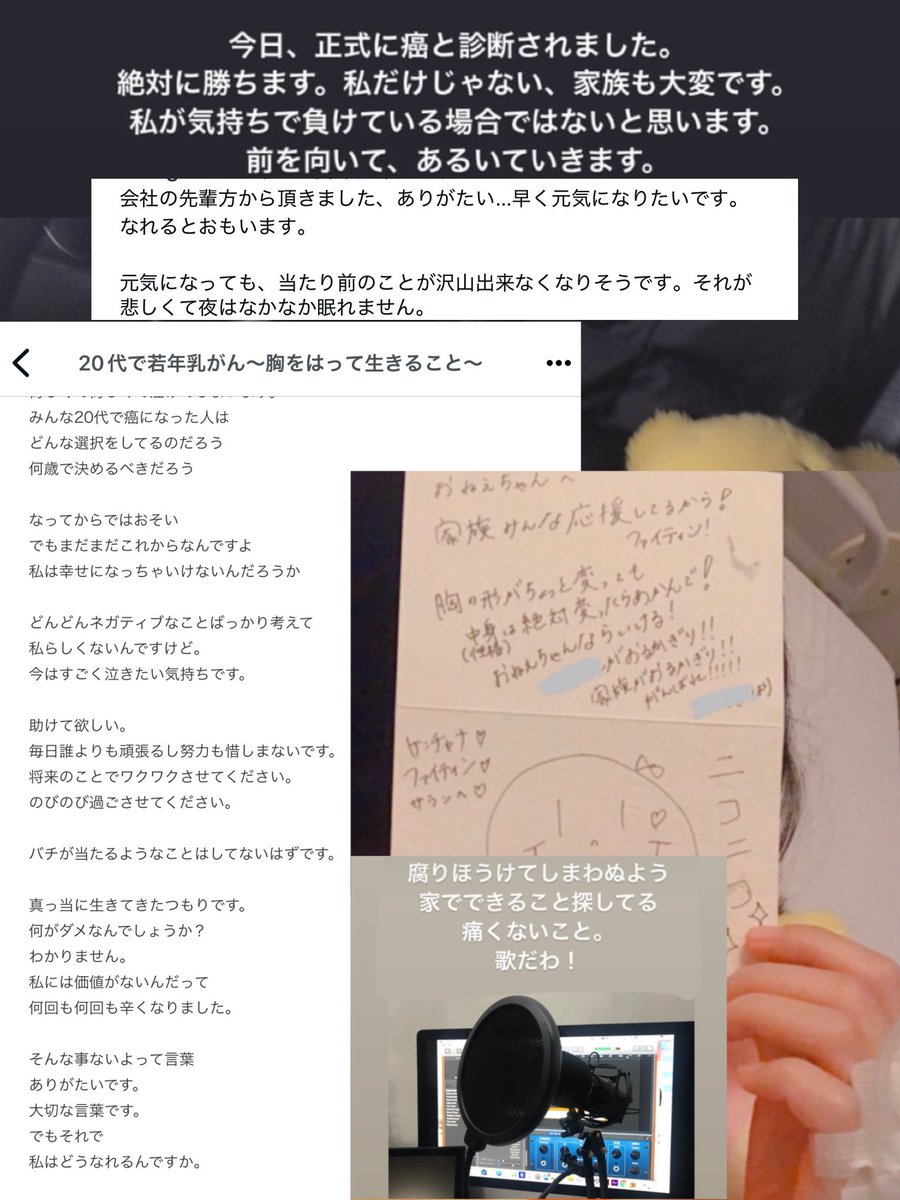 今日、正式に癌と診断されました。
絶対に勝ちます。私だけじゃない、家族も大変です。
私が気持ちで負けている場合ではないと思います。
前を向いて、あるいていきます。
会社の先輩方から頂きました、ありがたい...早く元気になりたいです。
なれるとおもいます。
元気になっても、当たり前のことが沢山出来なくなりそうです。それが
悲しくて夜はなかなか眠れません。
20代で若年乳がん〜胸をはって生きること〜
みんな20代で癌になった人は
どんな選択をしてるのだろう
何歳で決めるべきだろう
なってからではおそい
でもまだまだこれからなんですよ
私は幸せになっちゃいけないんだろうか
どんどんネガティブなことばっかり考えて
私らしくないんですけど。
今はすごく泣きたい気持ちです。
助けて欲しい。
毎日誰よりも頑張るし努力も惜しまないです。
将来のことでワクワクさせてください。
のびのび過ごさせてください。
バチが当たるようなことはしてないはずです。
真っ当に生きてきたつもりです。
何がダメなんでしょうか？
わかりません。
私には価値がないんだって
何回も何回も辛くなりました。
そんな事ないよって言葉
ありがたいです。
大切な言葉です。
でもそれで
私はどうなれるんですか。
おねえちゃんへ
家族みんな応援してるから！
ファイティン！
胸の形がちょっと変っても
中身は絶対変ったらあかんで！
(性格)
おねえちゃんならいける！
がおるかぎり！！
家族がおるかぎり！！
がんばれ!!!!!
より)
ケンチャナ♡
ファイティン♡
サランヘ♡
ニコニコ
腐りほうけてしまわぬよう
家でできること探してる
痛くないこと。
歌だわ！